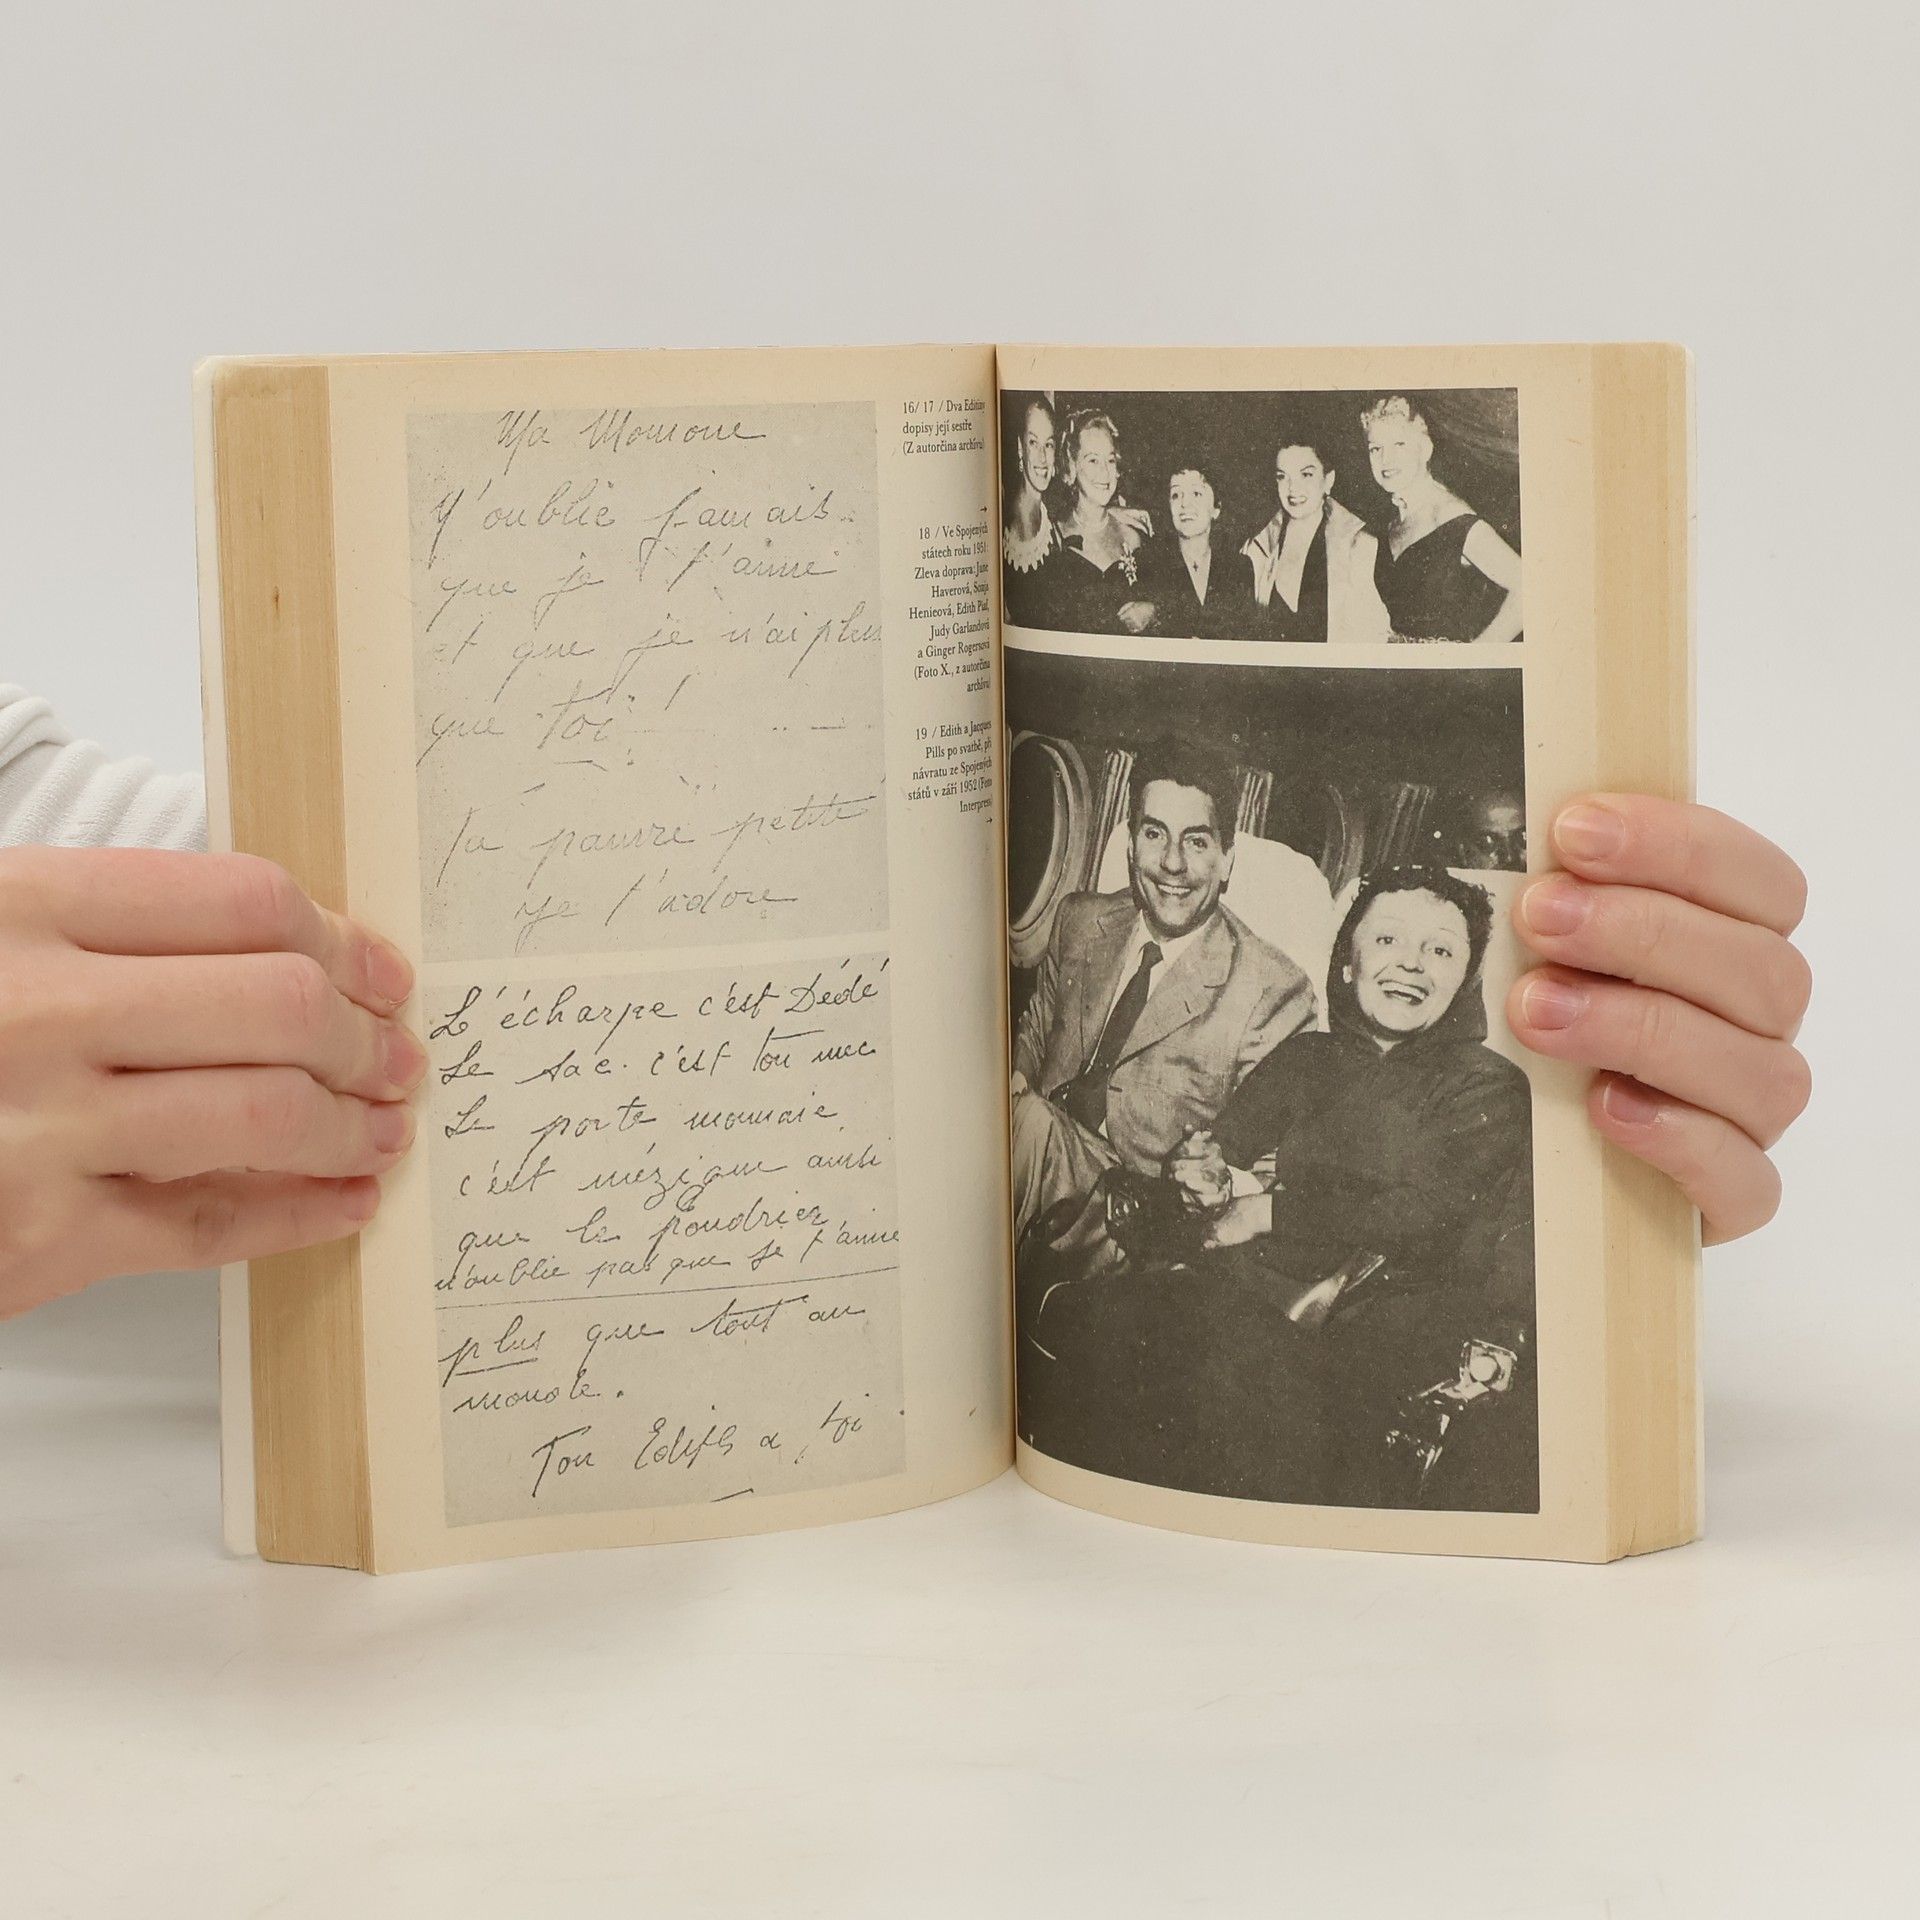 Ma Momone
N'oublie jamais
que je t'aime
et que je n'ai plus
que toi!
Ta pauvre petite
je t'adore
L'écharpe c'est Dédé
Le sac. c'est ton mec
Le porte monnaie
c'est mézigue ainsi
que le poudrier
n'oublie pas que je t'aime
plus que tout au
monde.
Ton Edith a toi
16/ 17 / Dva Editiny
dopisy její sestře
(Z autorčina archívu)
→
18 / Ve Spojených
státech roku 1951:
Zleva doprava: June
Haverová, Sonja
Henieová, Edith Piaf,
Judy Garlandová
a Ginger Rogersová
(Foto X., z autorčina
archívu)
19 / Edith a Jacques
Pills po svatbě, při
návratu ze Spojených
států v září 1952 (Foto
Interpress)
→